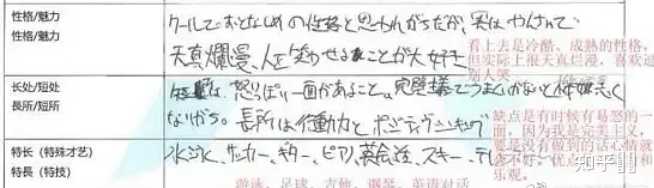 性格/魅力
性格/魅力
クールで おとなしめの性格と思われがちだが、実は やんちゃで
天真爛漫、人を笑わせることが大好き
看上去是冷酷、成熟的性格,
但实际上很天真烂漫,喜欢逗
别人笑
长处/短处
長所/短所
短所は、怒りっぽい一面があること。完璧主義でうまくいかないと 機嫌悪く
なりがち。長所は行動力と ポジティブシンキング
缺点是有时候有易怒的一
面,因为我是完美主义,
要是没有做到的话心情就
会不好。优点是行动力和
乐观。
特长(特殊才艺)
特長(特技)
水泳、サッカー、ギター、ピアノ、英会話、スキー、テ
游泳、足球、吉他、钢琴、英语对话
知乎